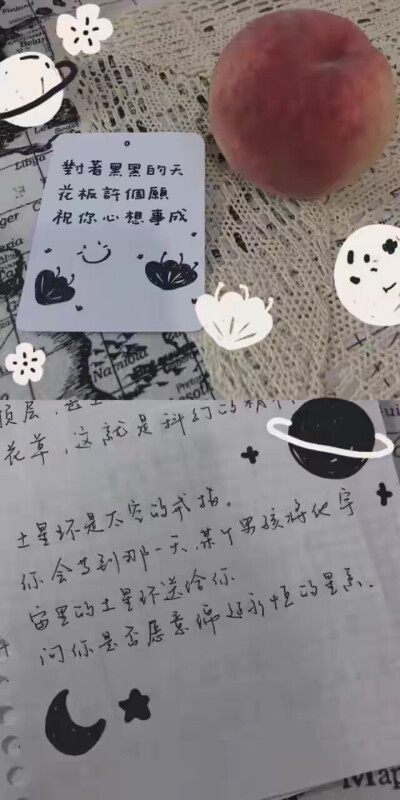 Libya
對著黑黑的天
花板許個願
祝你心想事成
Namibia
顶层,
花草,这就是科幻的
土星环是太空的戒指。
你会等到那一天,某个男孩将他宇
宙里的土星环送给你
问你是否愿意绵延永恒的星系.
Map